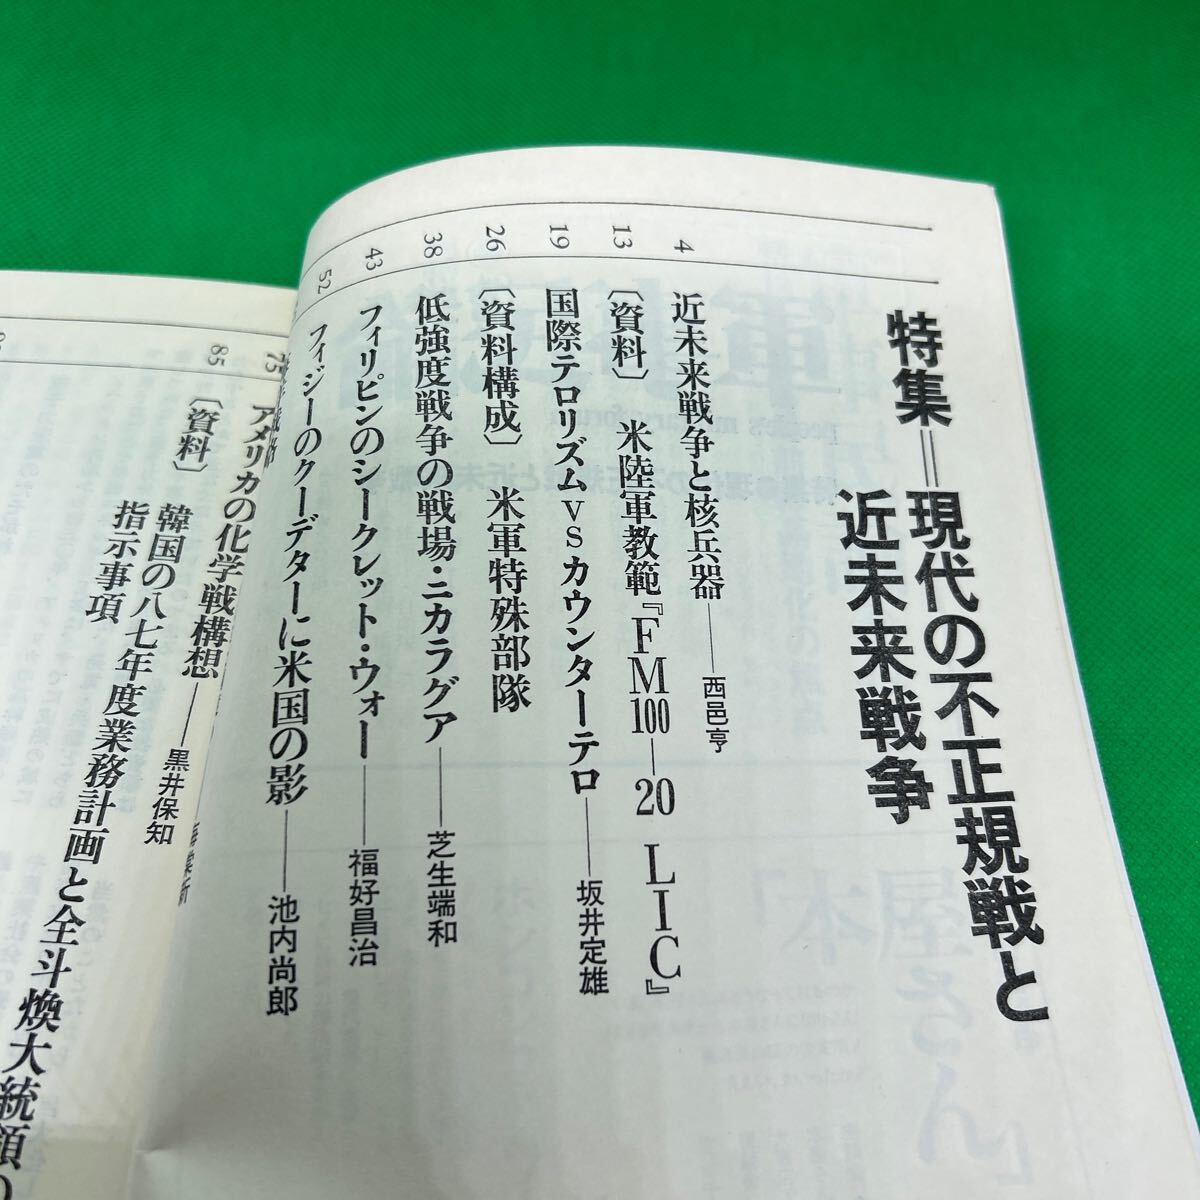 特集＝現代の不正規戦と
近未来戦争
4 近未来戦争と核兵器――西邑亨
13 〔資料〕 米陸軍教範『FM100―20 LIC』
19 国際テロリズムvsカウンターテロ――坂井定雄
26 〔資料構成〕 米軍特殊部隊
38 低強度戦争の戦場・ニカラグア――芝生端和
43 フィリピンのシークレット・ウォー――福好昌治
52 フィジーのクーデターに米国の影――池内尚郎
75 アメリカの化学戦構想――黒井保知
85 〔資料〕 韓国の八七年度業務計画と全斗煥大統領の
指示事項